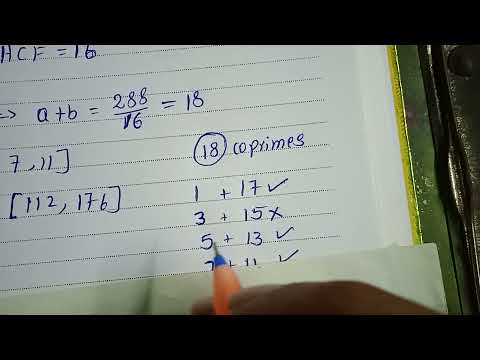 HCF = 16
⇒ a+b = 288/16 = 18
7, 11]
[112, 176]
18 coprimes
1 + 17 ✓
3 + 15 ×
5 + 13 ✓
7 + 11 ✓